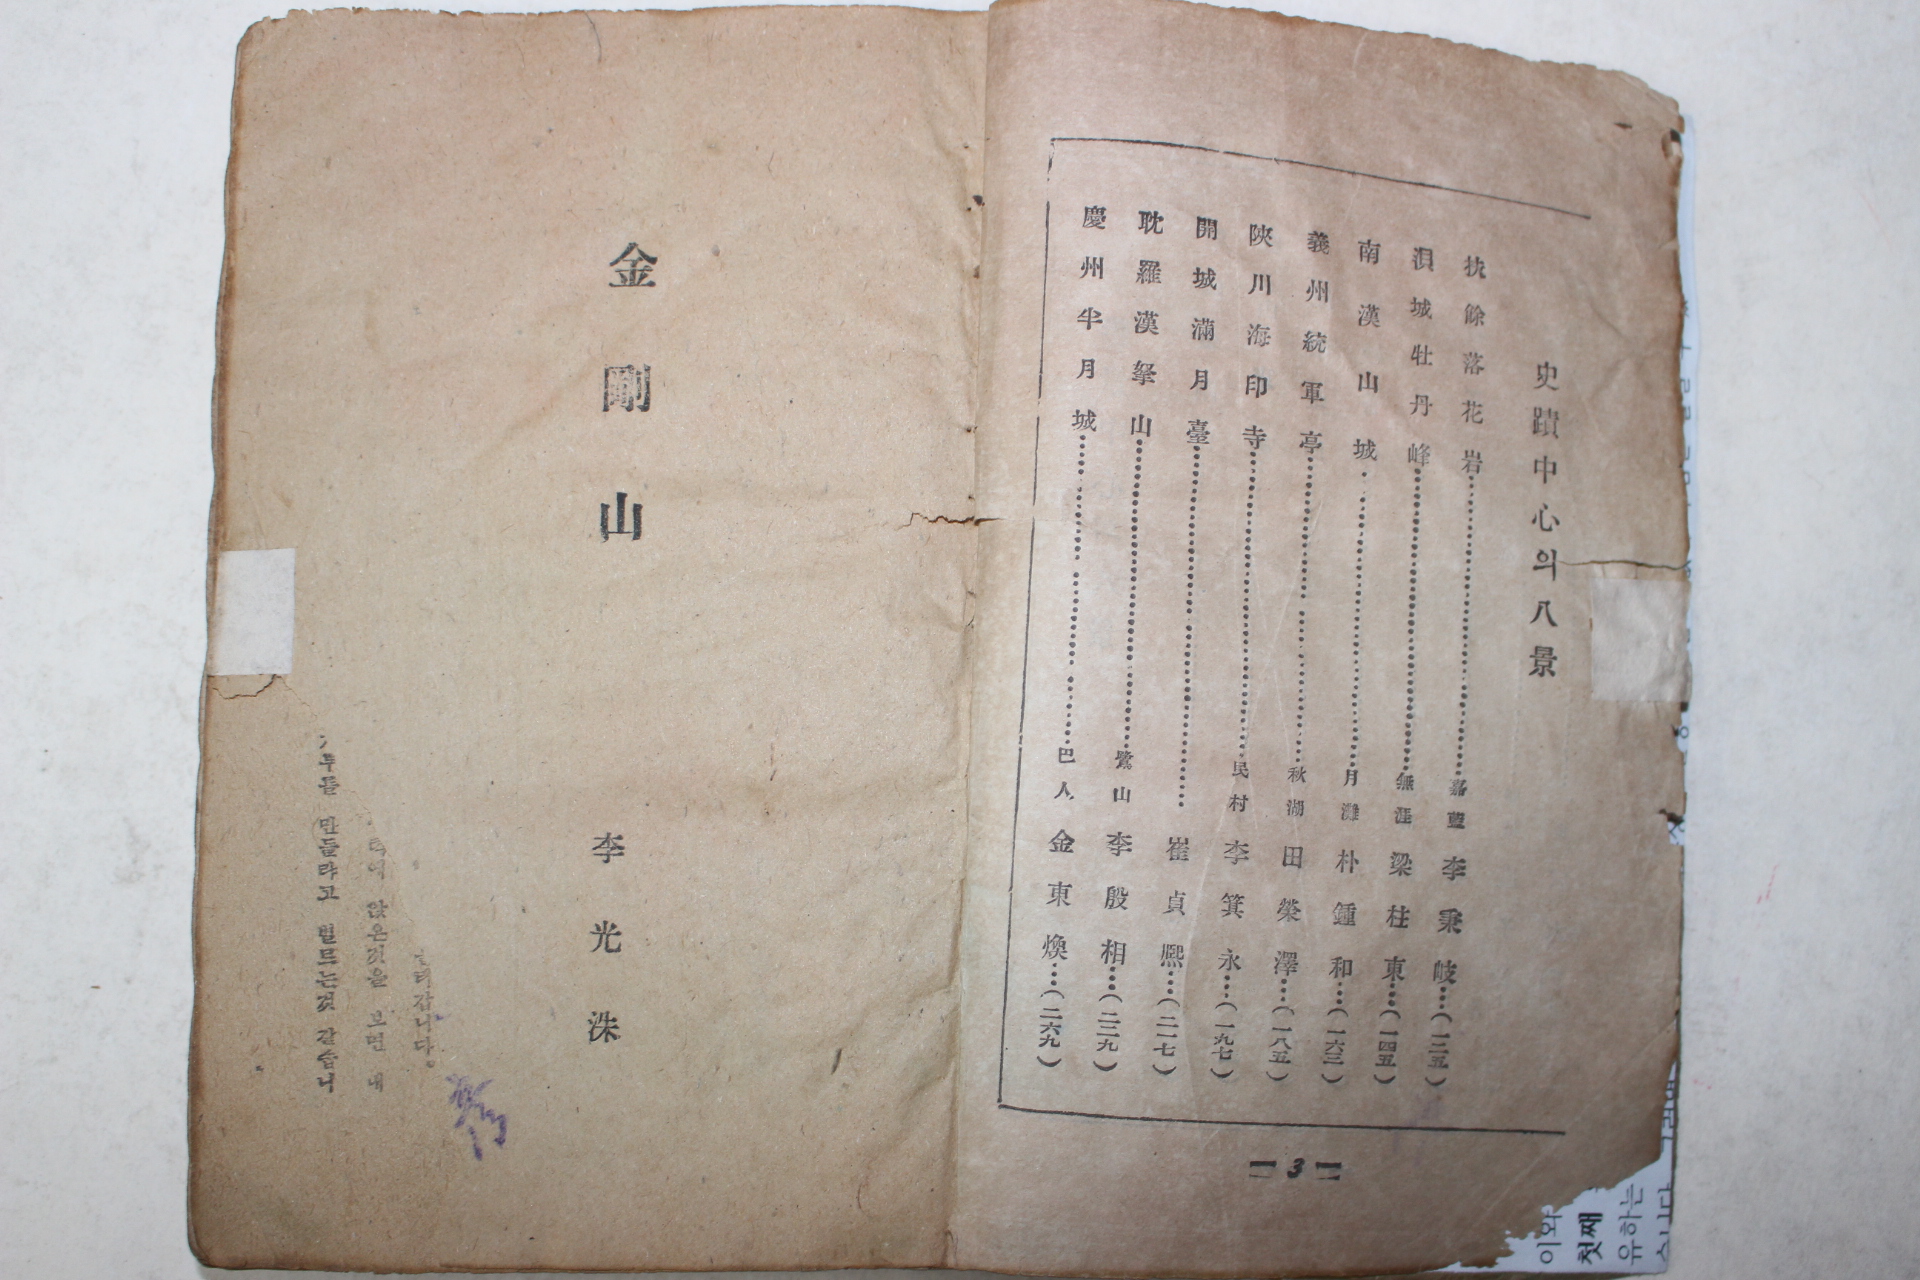 史蹟中心의八景
扶餘落花岩…………嘉藍 李秉岐…(一二五)
浿城牡丹峰…………無涯 梁柱東…(一四五)
南漢山城…………月灘 朴鍾和…(一六三)
義州統軍亭…………秋湖 田榮澤…(一八五)
陜川海印寺…………民村 李箕永…(一九七)
開城滿月臺…………崔貞熙…(二一七)
耽羅漢拏山…………鷺山 李殷相…(二二九)
慶州半月城…………巴人 金東煥…(二六九)
3
金剛山
李光洙
갑니다。
앉은것을 보면 내
만들랴고 벌므는것 같습니
이와
첫째
유하는